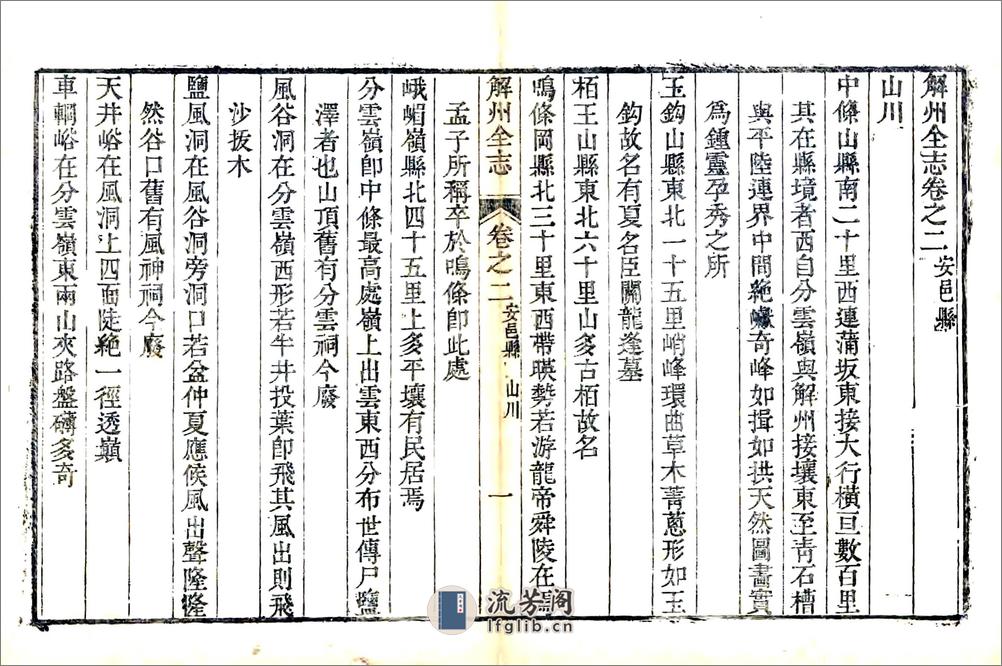 解州全志卷之二 安邑縣
山川
中條山縣南二十里西連蒲坂東接大行橫亘數百里
其在縣境者西自分雲嶺與解州接壤東至靑石槽
與平陸連界中間絶巘奇峰如揖如拱天然圖畵實
爲鍾靈孕秀之所
玉鈎山縣東北一十五里峭峰環曲草木菁蔥形如玉
鈎故名有夏名臣關龍逄墓
栢王山縣東北六十里山多古栢故名
鳴條岡縣北三十里東西帶暎勢若游龍帝舜陵在焉
解州全志 卷之二 安邑縣 山川 一
孟子所稱卒於鳴條卽此處
峨嵋嶺縣北四十五里上多平壤有民居焉
分雲嶺卽中條最高處嶺上出雲東西分布世傳尸鹽
澤者也山頂舊有分雲祠今廢
風谷洞在分雲嶺西形若牛井投葉卽飛其風出則飛
沙拔木
鹽風洞在風谷洞旁洞口若盆仲夏應候風出聲隆隆
然谷口舊有風神祠今廢
天井峪在風洞上四面陡絶一徑透巔
車輞峪在分雲嶺東兩山夾路盤礴多奇
流芳閣
lfglib.cn